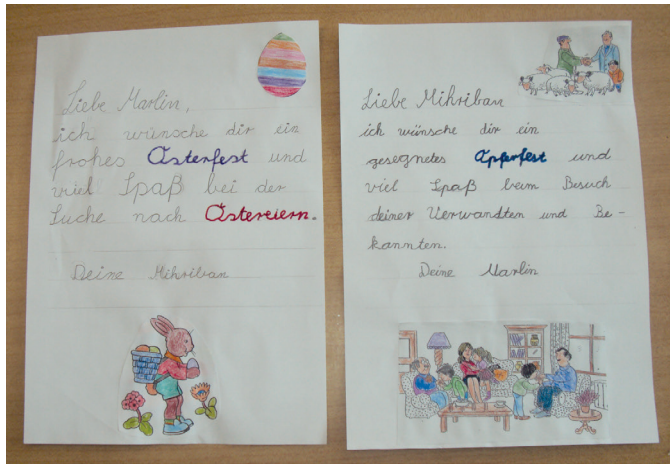 Liebe Marlin,
ich wünsche dir ein
frohes Osterfest und
viel Spaß bei der
Suche nach Ostereiern.
Deine Mihriban
Liebe Mihriban
ich wünsche dir ein
gesegnetes Opferfest und
viel Spaß beim Besuch
deiner Verwandten und Be-
kannten.
Deine Marlin